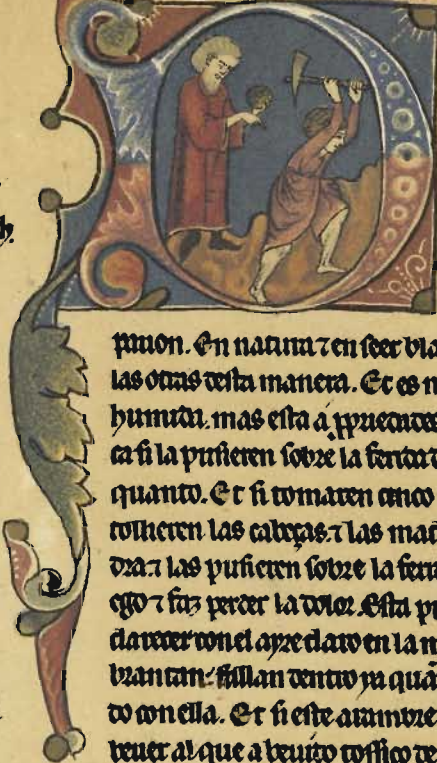 h.
pmon. En natura ⁊ en seer bla
las otras desta manera. Et es m
humida. mas esta a ꝓpriedades
ca si la pusieren sobre la ferida d
quanto. Et si tomaren cinco
tollieren las cabeças. ⁊ las mad
dra. ⁊ las pusieren sobre la feri
ego ⁊ faz perder la dolor. Esta p
clarecer con el ayre claro en la n
brantan. fallan dentro ya quã
do con ella. Et si este arambre
beuer al que a beuido tossico de